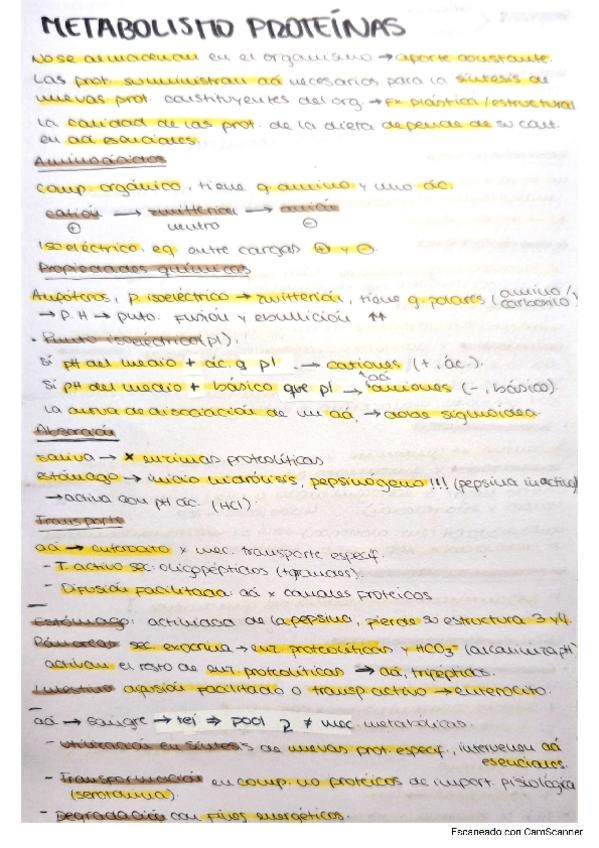 METABOLISMO PROTEÍNAS
No se almacenan en el organismo → aporte constante.
Las prot. suministran aá necesarios para la síntesis de
nuevas prot. constituyentes del org. → Fx plástica / estructural
La calidad de las prot. de la dieta depende de su cant.
en aá esenciales.
Aminoácidos
Comp. orgánico, tiene g. amino y uno ác.
catión → zwitterión → anión
⊕ neutro ⊖
Isoeléctrico. eq entre cargas ⊕ y ⊖.
Propiedades químicas
Anfóteros, p. isoeléctrico → zwitterión, tiene g. polares (amino/
carboxilo)
→ P. H → pnto. fusión y ebullición ↑↑
• Punto isoeléctrico (pI).
Si pH del medio + ác. q pI → cationes (+, ác.).
Si pH del medio + básico que pI → aá aniones (-, básico).
La curva de disociación de un aá, → doble sigmoidea.
Absorción
saliva → x enzimas proteolíticas
estómago → inicio hidrólisis, pepsinógeno!!! (pepsina inactiva)
→ activa con pH ác. (HCl).
Transporte
aá → enterocito x mec. transporte específ.
- T. activo sec: oligopéptidos (+grandes).
- Difusión facilitada: aá x canales proteicos
Estómago: actividad de la pepsina, pierde su estructura 3 y 4.
Páncreas sec. exocrina → enz. proteolíticas y HCO3⁻ (alcaliniza pH)
activan el resto de enz. proteolíticas → aá, tripéptidos.
Intestino difusión facilitada o transp. activo → enterocito.
aá → sangre → tej ⇒ pool 2 ≠ mec. metabólicas.
- Utilización en síntesis de nuevas prot. específ., intervienen aá
esenciales.
- Transformación en comp. no proteicos de import. fisiológica
(serotonina).
- Degradación con fines energéticos.
Escaneado con CamScanner